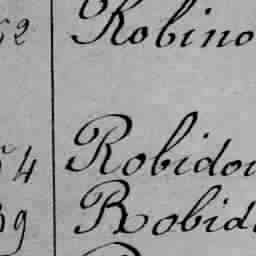 52 Robino
54 Robidou
59 Robida